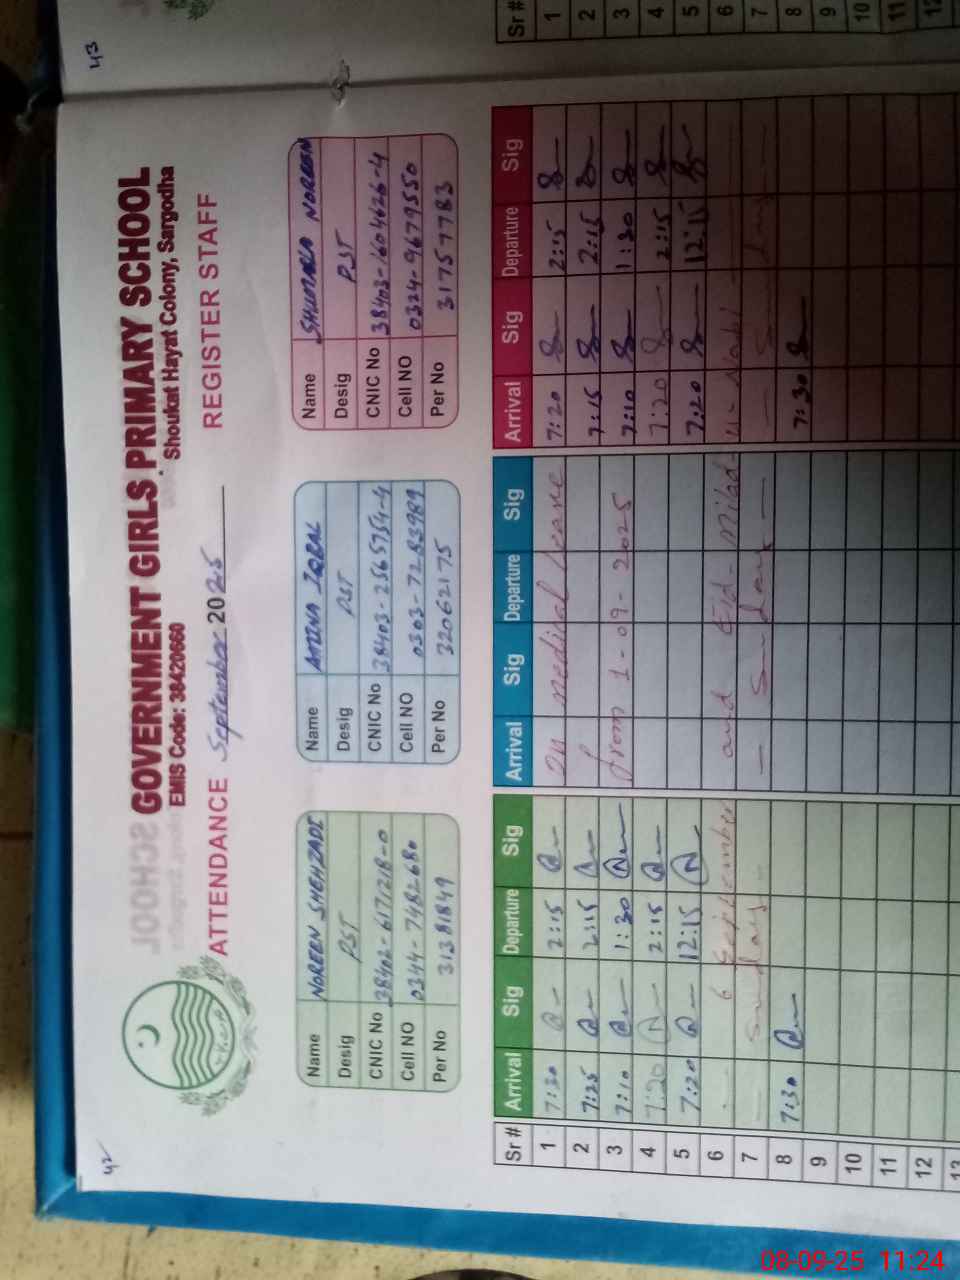 42
43
GOVERNMENT GIRLS PRIMARY SCHOOL
EMIS Code: 38420660
Shoukat Hayat Colony, Sargodha
ATTENDANCE September 2025 REGISTER STAFF
Name NOREEN SHEHZADI
Desig PST
CNIC No 38402-6171218-0
Cell NO 0344-7482680
Per No 31381849
Name AMENA IQBAL
Desig PST
CNIC No 38403-2565754-4
Cell NO 0303-7283989
Per No 32062175
Name SHUMAILA NOREEN
Desig PST
CNIC No 38403-1604626-4
Cell NO 0324-9679550
Per No 31757783
Sr # Arrival Sig Departure Sig Arrival Sig Departure Sig Arrival Sig Departure Sig
1 7:30 2:15 On medical leave 7:20 2:15
2 7:25 2:15 7:15 2:15
3 7:10 1:30 from 1-09-2025 7:10 1:30
4 7:20 2:15 7:20 2:15
5 7:20 12:15 7:20 12:15
6 6 September and Eid-Milad-u-Nabi
7 Sunday Sunday Sunday
8 7:30 7:30
9
10
11
12
13
Sr #
1
2
3
4
5
6
7
8
9
10
11
12
08-09-25 11:24